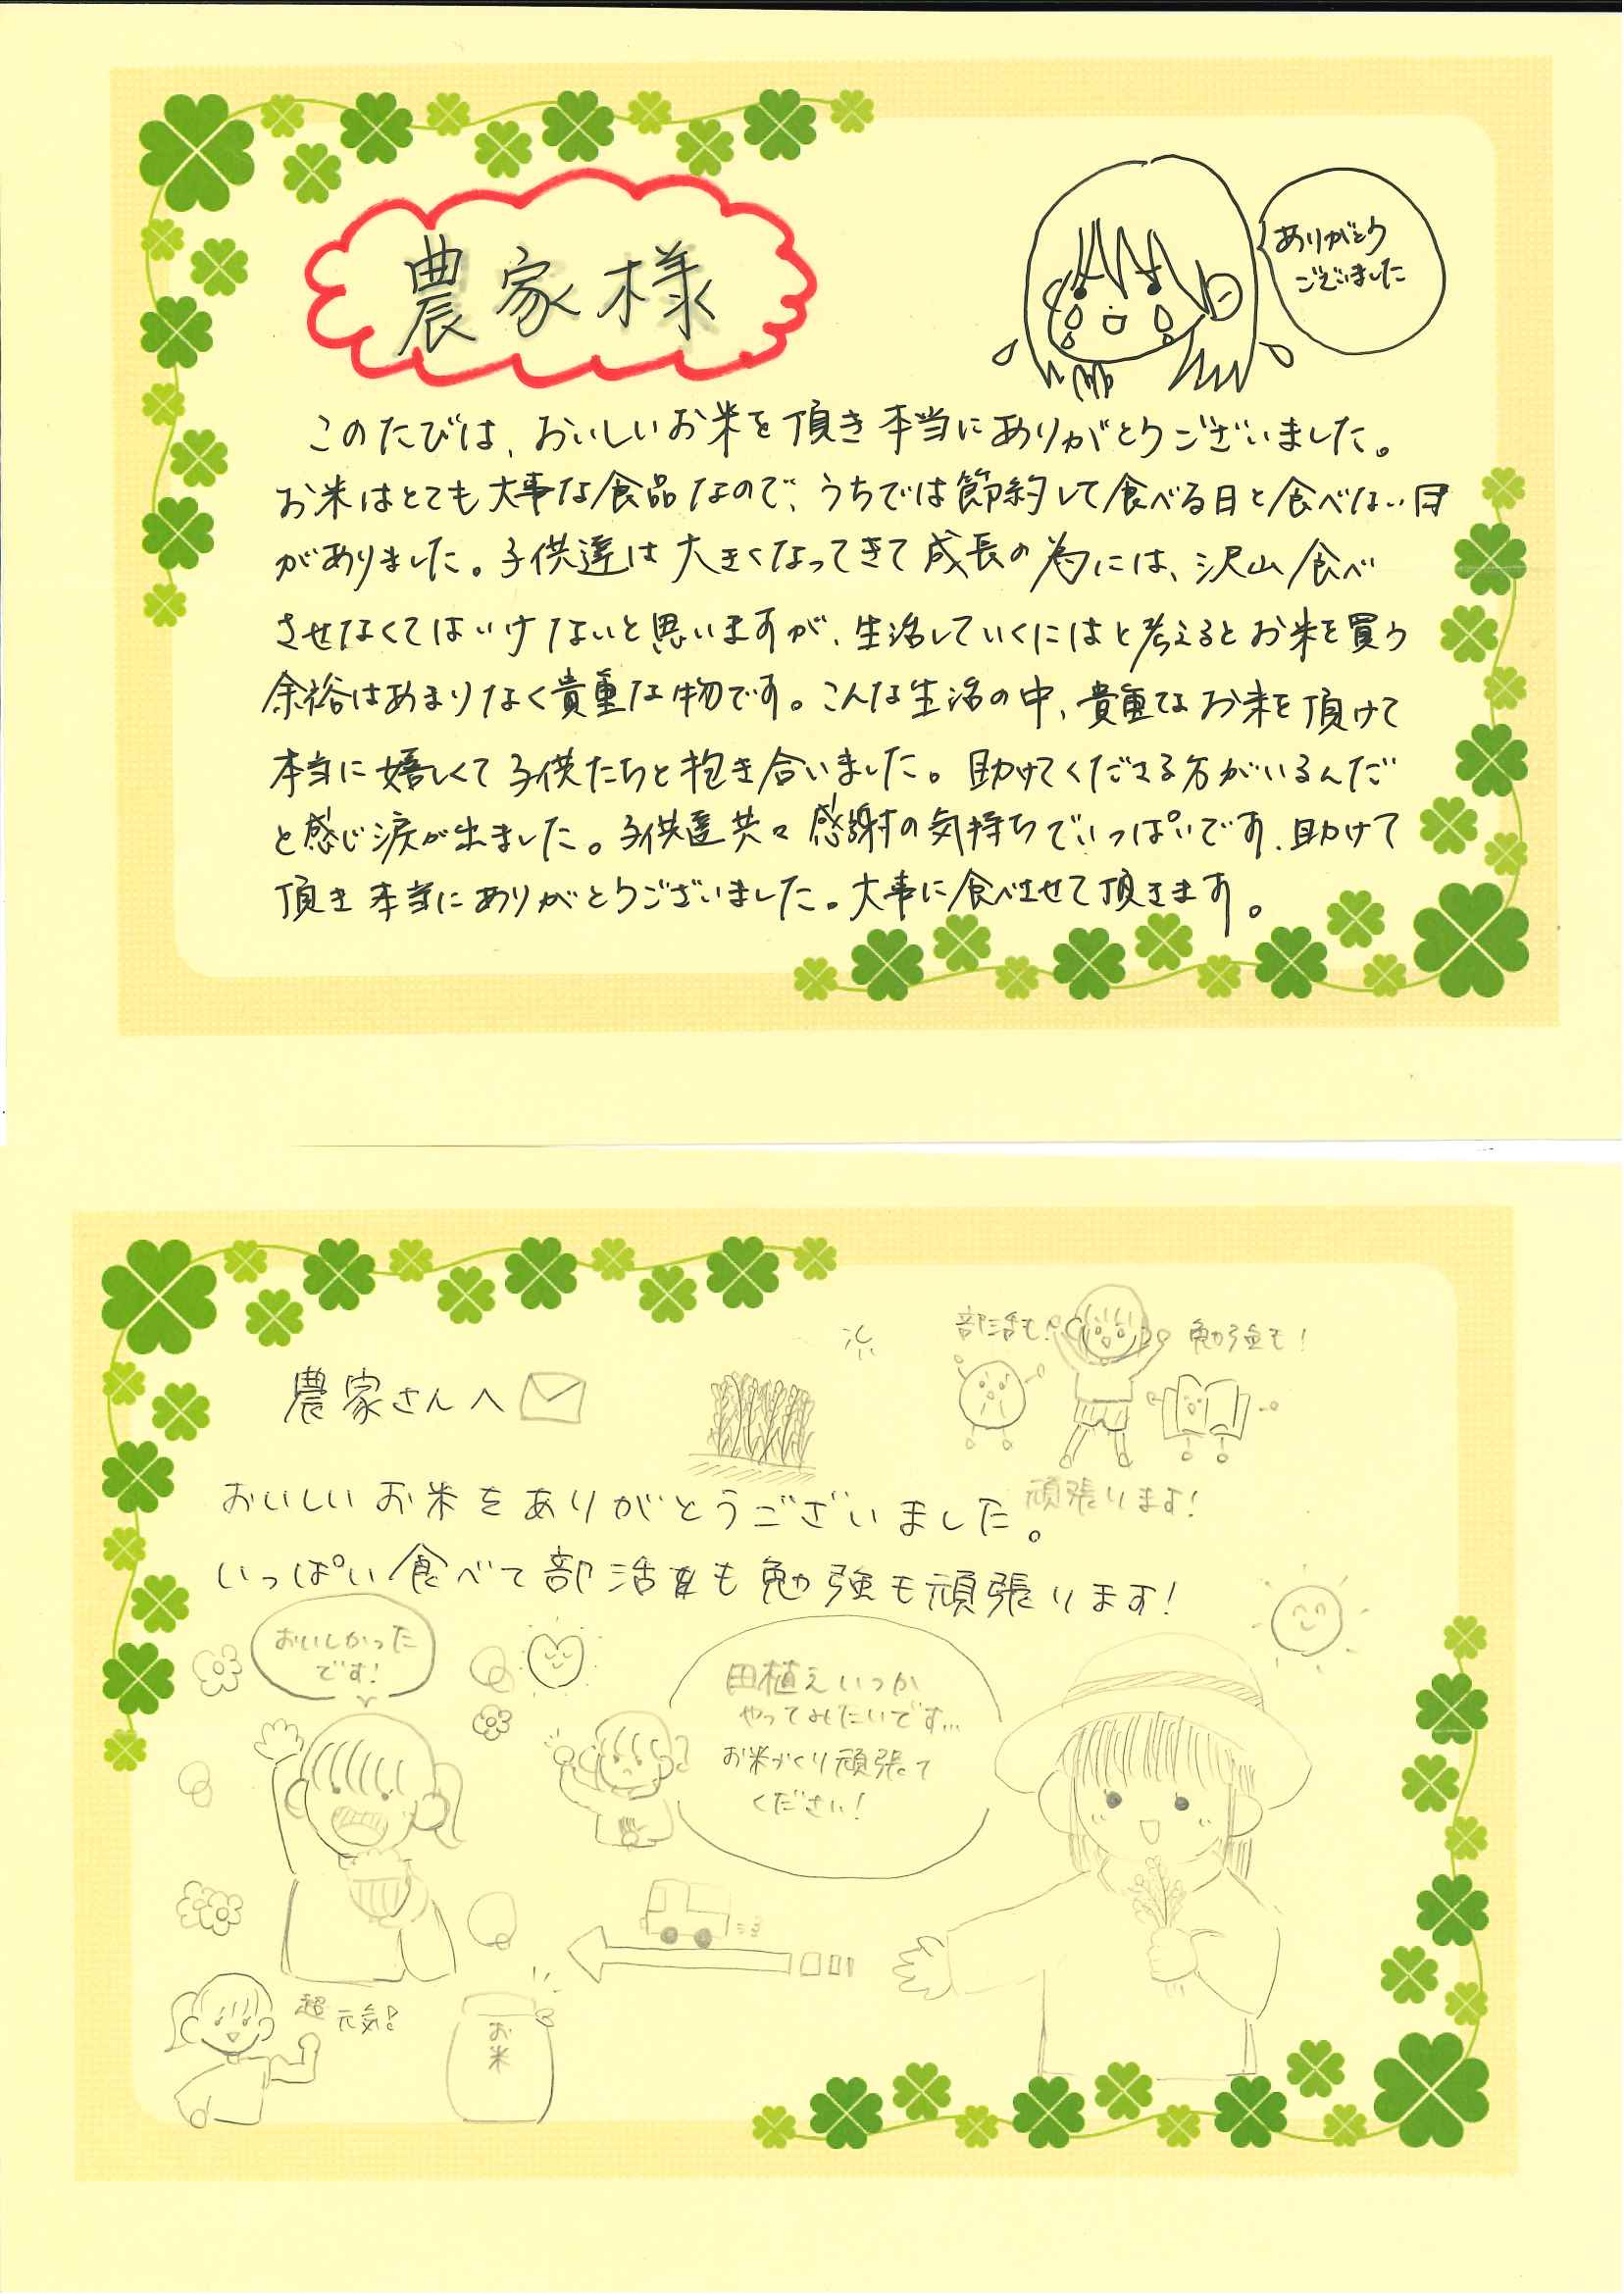 農家様
ありがとう
ございました
このたびは、おいしいお米を頂き本当にありがとうございました。
お米はとても大事な食品なので、うちでは節約して食べる日と食べない日
がありました。子供達は大きくなってきて成長の為には、沢山食べ
させなくてはいけないと思いますが、生活していくにはと考えるとお米を買う
余裕はあまりなく貴重な物です。こんな生活の中、貴重なお米を頂けて
本当に嬉しくて子供たちと抱き合いました。助けてくださる方がいるんだ
と感じ涙が出ました。子供達共々感謝の気持ちでいっぱいです、助けて
頂き本当にありがとうございました。大事に食べさせて頂きます。
部活も!
勉強も!
頑張ります!
農家さんへ
おいしいお米をありがとうございました。
いっぱい食べて部活も勉強も頑張ります!
おいしかった
です!
田植えいつか
やってみたいです…
お米づくり頑張って
ください!
超元気!
お米